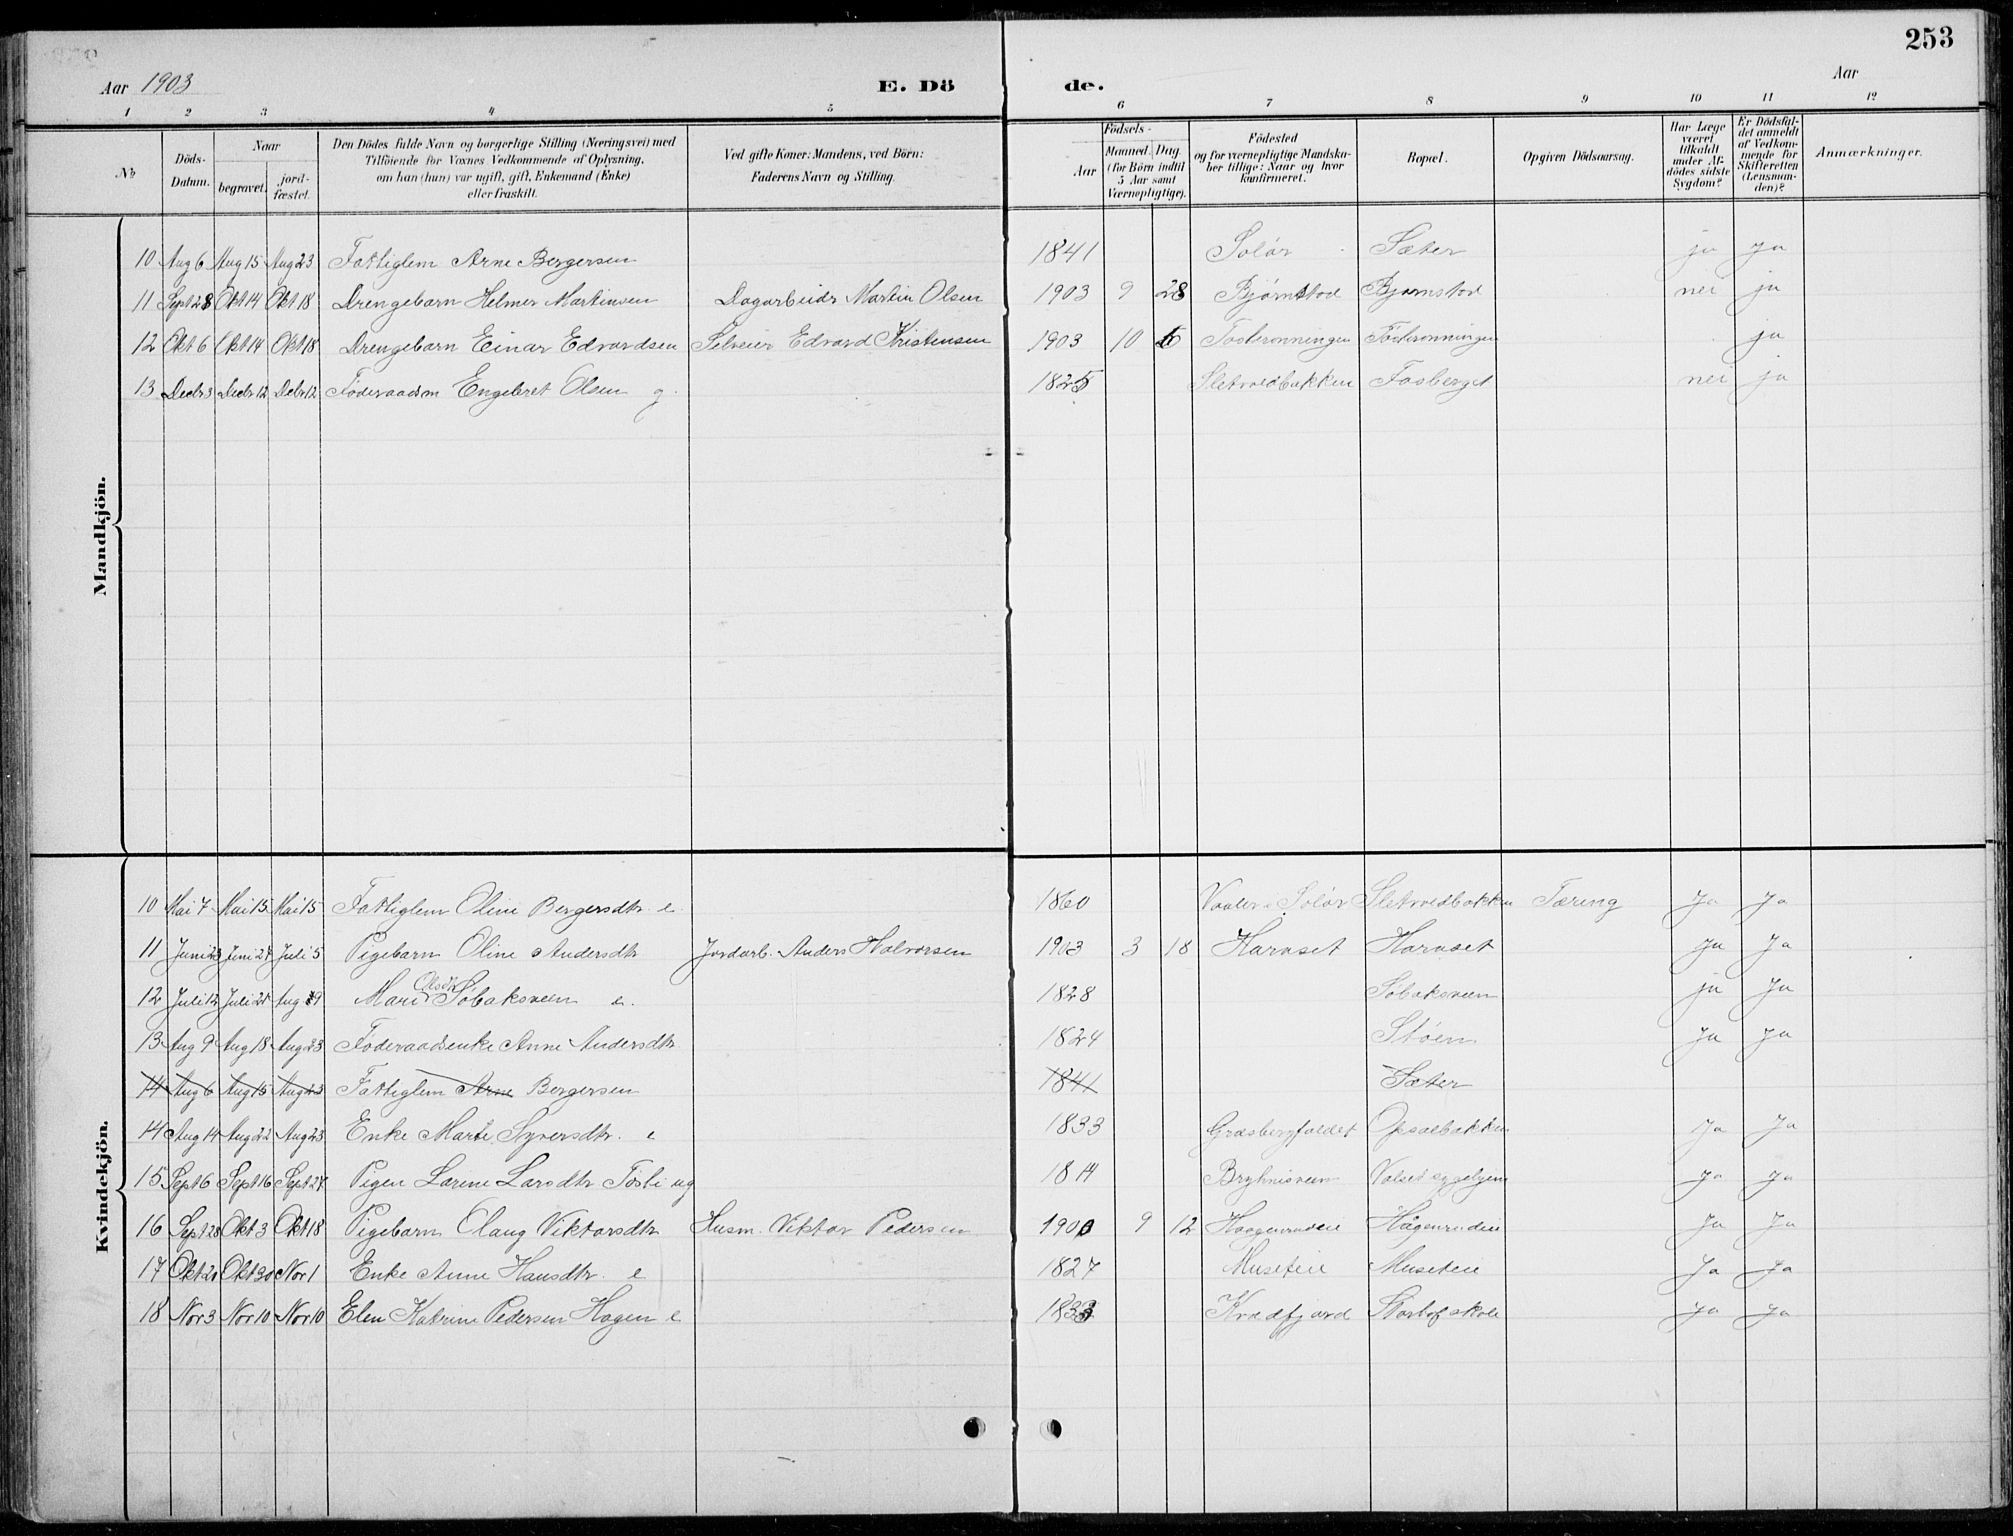 253
Aar 1903 E. Dö de. Aar
1 2 3 4 5 6 7 8 9 10 11 12
№
Döds-Datum.
Naar
begravet.
jord-fæstet.
Den Dödes fulde Navn og borgerlige Stilling (Næringsvei) med
Tilföiende for Voxnes Vedkommende af Oplysning,
om han (hun) var ugift, gift, Enkemand (Enke)
eller fraskilt.
Ved gifte Koner: Mandens, ved Börn:
Faderens Navn og Stilling.
Födsels-
Aar
Maaned. Dag.
(for Börn indtil
5 Aar samt
Værnepligtige).
Födested
og for værnepligtige Mandska-
ber tillige: Naar og hvor
konfirmeret.
Bopæl.
Opgiven Dödsaarsag.
Har Læge
været
tilkaldt
under Af-
dödes sidste
Sygdom?
Er Dödsfal-
det anmeldt
af Vedkom-
mende for
Skifteretten
(Lensman-
den)?
Anmærkninger.
Mandkjön.
10 Aug 6 Aug 15 Aug 23 Fattiglem Arne Bergersen 1841 Solør Sæter ja ja
11 Sept 28 Okt 14 Okt 18 Drengebarn Helmer Martinsen Dagarbeidr Martin Olsen 1903 9 28 Bjørnstod Bjørnstod nei ja
12 Okt 6 Okt 14 Okt 18 Drengebarn Einar Edvardsen Selveier Edvard Kristensen 1903 10 ja
13 Decbr 3 Decbr 12 Debr 12 Føderaadsm Engebret Olsen g. 1825 Sletvoldbakken Fosberget nei ja
Kvindekjön.
10 Mai 7 Mai 15 Mai 15 Fattiglem Oline Bergersdtr e. 1860 Vaaler i Solør Sletvoldbakken Tæring Ja Ja
11 Juni 23 Juni 27 Juli 5 Pigebarn Oline Andersdtr Jordarb. Anders Halvorsen 1903 3 18 Harnset Harnset Ja Ja
12 Juli 12 Juli 21 Aug 9 Mari Olsdtr Søbaksveen e. 1828 Søbaksveen ja Ja
13 Aug 9 Aug 18 Aug 23 Føderaadsenke Anne Andersdtr 1824 Støen Ja Ja
14 Aug 6 Aug 15 Aug 23 Fattiglem Arne Bergersen 1841 Sæter
14 Aug 14 Aug 22 Aug 23 Enke Marte Syversdtr. e 1833 Græsbergfaldet Opsalbakken Ja Ja
15 Sept 6 Sept 16 Sept 27 Pigen Larine Larsdtr Fosli ug Bryhnisveen Valset sygehjem Ja Ja
16 Sept 28 Okt 3 Okt 18 Pigebarn Olaug Viktorsdtr Husm. Viktor Pedersen 1900 9 12 Haagenrudeie Hågenrudeie Ja Ja
17 Okt 20 Okt 30 Nov 1 Enke Anne Hansdtr. e 1827 Museteie Museteie Ja Ja
18 Nov 3 Nov 10 Nov 10 Elen Katrine Pedersen Hagen e 1833 Kvædfjord Storhof skole Ja Ja